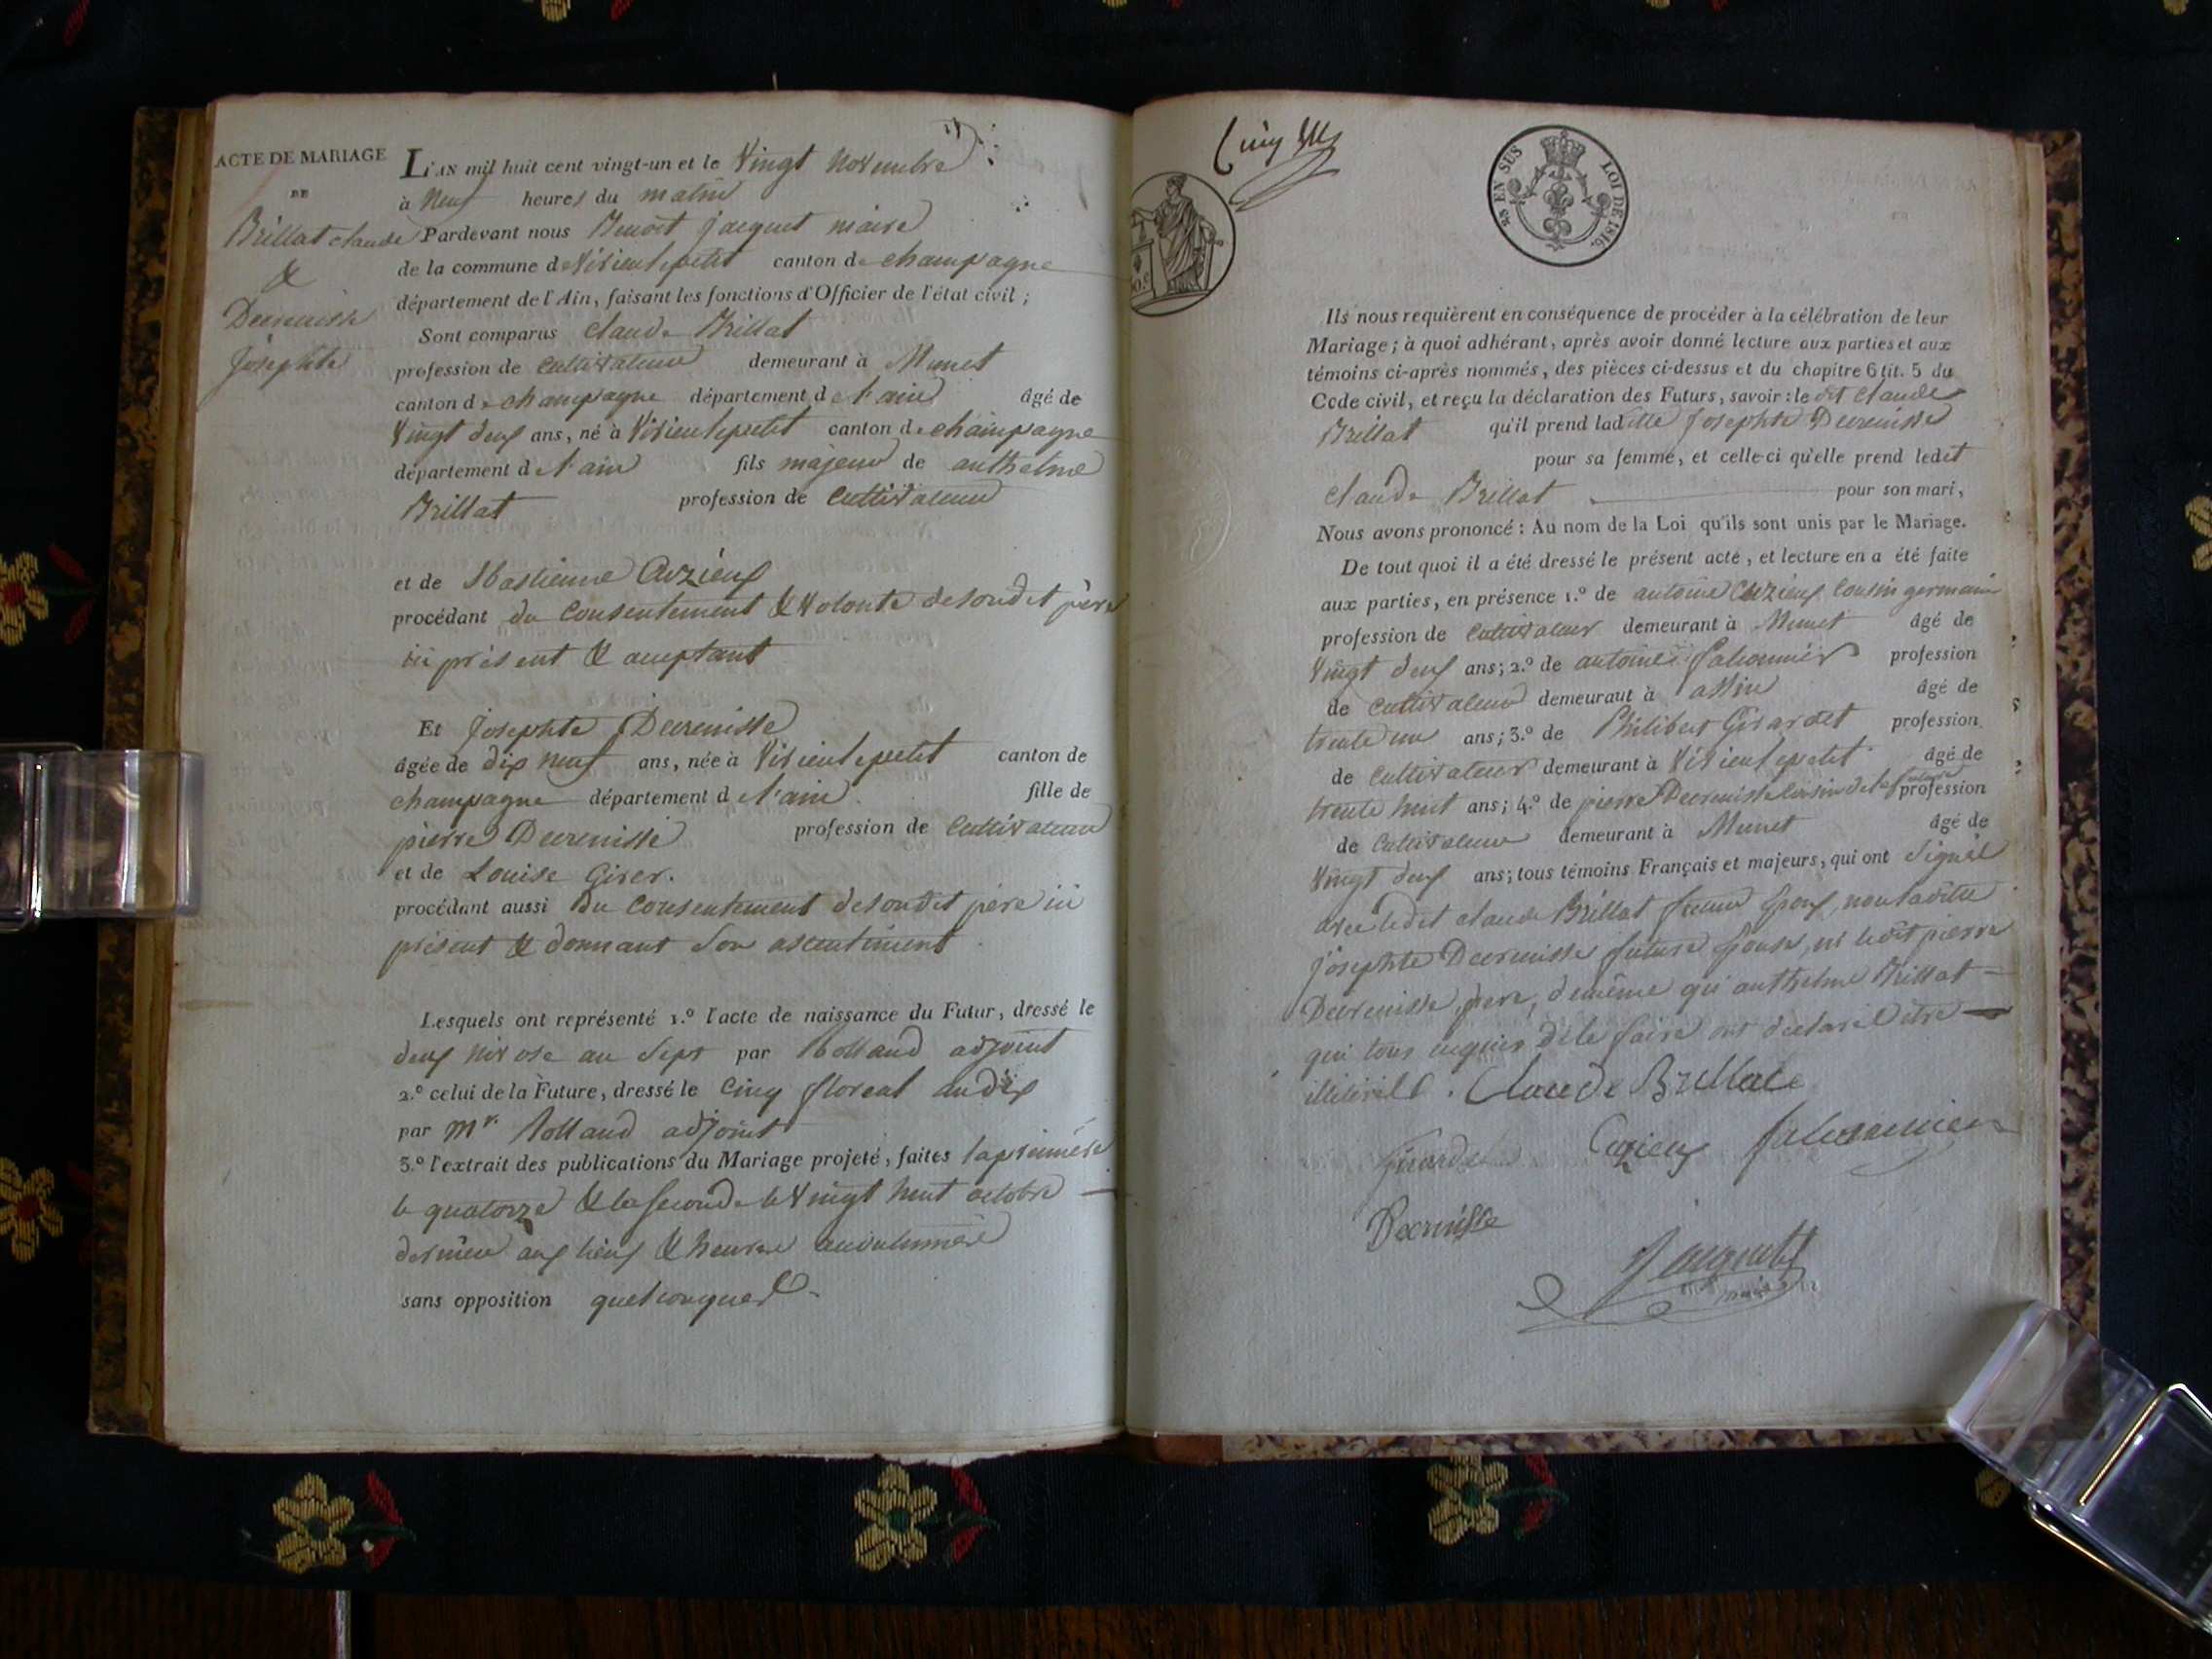 ACTE DE MARIAGE
DE
Brillat claude
&
Decrenisse
Josephte
L'AN mil huit cent vingt-un et le Vingt Novembre
à Neuf heures du matin
Pardevant nous Benoit Jacquet maire
de la commune de Virieulepetit canton de champagne
département de l'Ain, faisant les fonctions d'Officier de l'état civil ;
Sont comparus Claude Brillat
profession de Cultivateur demeurant à Munet
canton de champagne département de l'ain âgé de
Vingt deux ans, né à Virieulepetit canton de champagne
département de l'ain fils majeur de anthelme
Brillat profession de Cultivateur
et de Sbastienne Cuzieux
procédant du Consentement & Volonté desondit père
ici présent & acceptant
Et Josephte Decrenisse
âgée de dix neuf ans, née à Virieulepetit canton de
champagne département de l'ain fille de
pierre Decrenisse profession de Cultivateur
et de Louise Girer.
procédant aussi du Consentement desondit père ici
présent & donnant son assentiment
Lesquels ont représenté 1.º l'acte de naissance du Futur, dressé le
deux nivose an Sept par Rolland adjoint
2.º celui de la Future, dressé le Cinq floreal an dix
par Mr. Rolland adjoint
3.º l'extrait des publications du Mariage projeté, faites la premiere
le quatorze & la seconde le Vingt huit octobre
dernier aux lieux & heures
sans opposition quelconque
Cinq
4s EN SUS
LOI DE 1816.
Ils nous requièrent en conséquence de procéder à la célébration de leur
Mariage ; à quoi adhérant, après avoir donné lecture aux parties et aux
témoins ci-après nommés, des pièces ci-dessus et du chapitre 6 tit. 5 du
Code civil, et reçu la déclaration des Futurs, savoir : le dit Claude
Brillat qu'il prend ladite Josephte Decrenisse
pour sa femme, et celle-ci qu'elle prend ledit
Claude Brillat pour son mari,
Nous avons prononcé : Au nom de la Loi qu'ils sont unis par le Mariage.
De tout quoi il a été dressé le présent acte, et lecture en a été faite
aux parties, en présence 1.º de antoine Cuzieux Cousin germain
profession de Cultivateur demeurant à Munet âgé de
Vingt deux ans ; 2.º de antoine falconnier profession
de Cultivateur demeurant à assin âgé de
trente un ans ; 3.º de Philibert Girardet profession
de Cultivateur demeurant à Virieulepetit âgé de
trente huit ans ; 4.º de pierre Decrenisse Cousin de la future profession
de Cultivateur demeurant à Munet âgé de
Vingt deux ans ; tous témoins Français et majeurs, qui ont signé
avec ledit claude Brillat futur Epoux, non ladite
Josephte Decrenisse future Epouse, ni ledit pierre
Decrenisse père, demême qu'anthelme Brillat
qui tous requis de le faire ont déclaré être
illitérés. Claude Brillat
Girardet Cuzieux falconnier
Decrenisse
Jacquet
maire